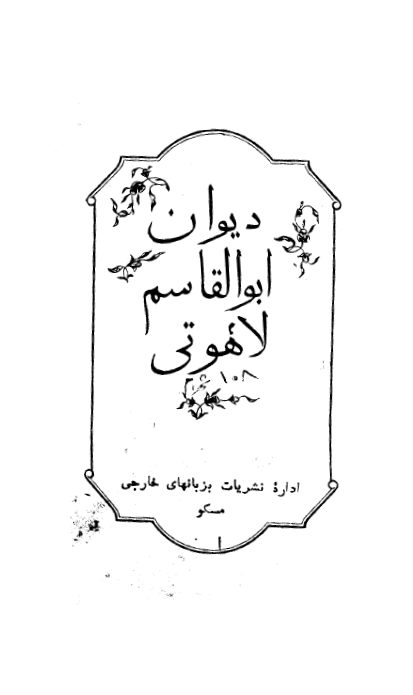 دیوان
ابوالقاسم
لاهوتی
ادارهٔ نشریات بزبانهای خارجی
مسکو